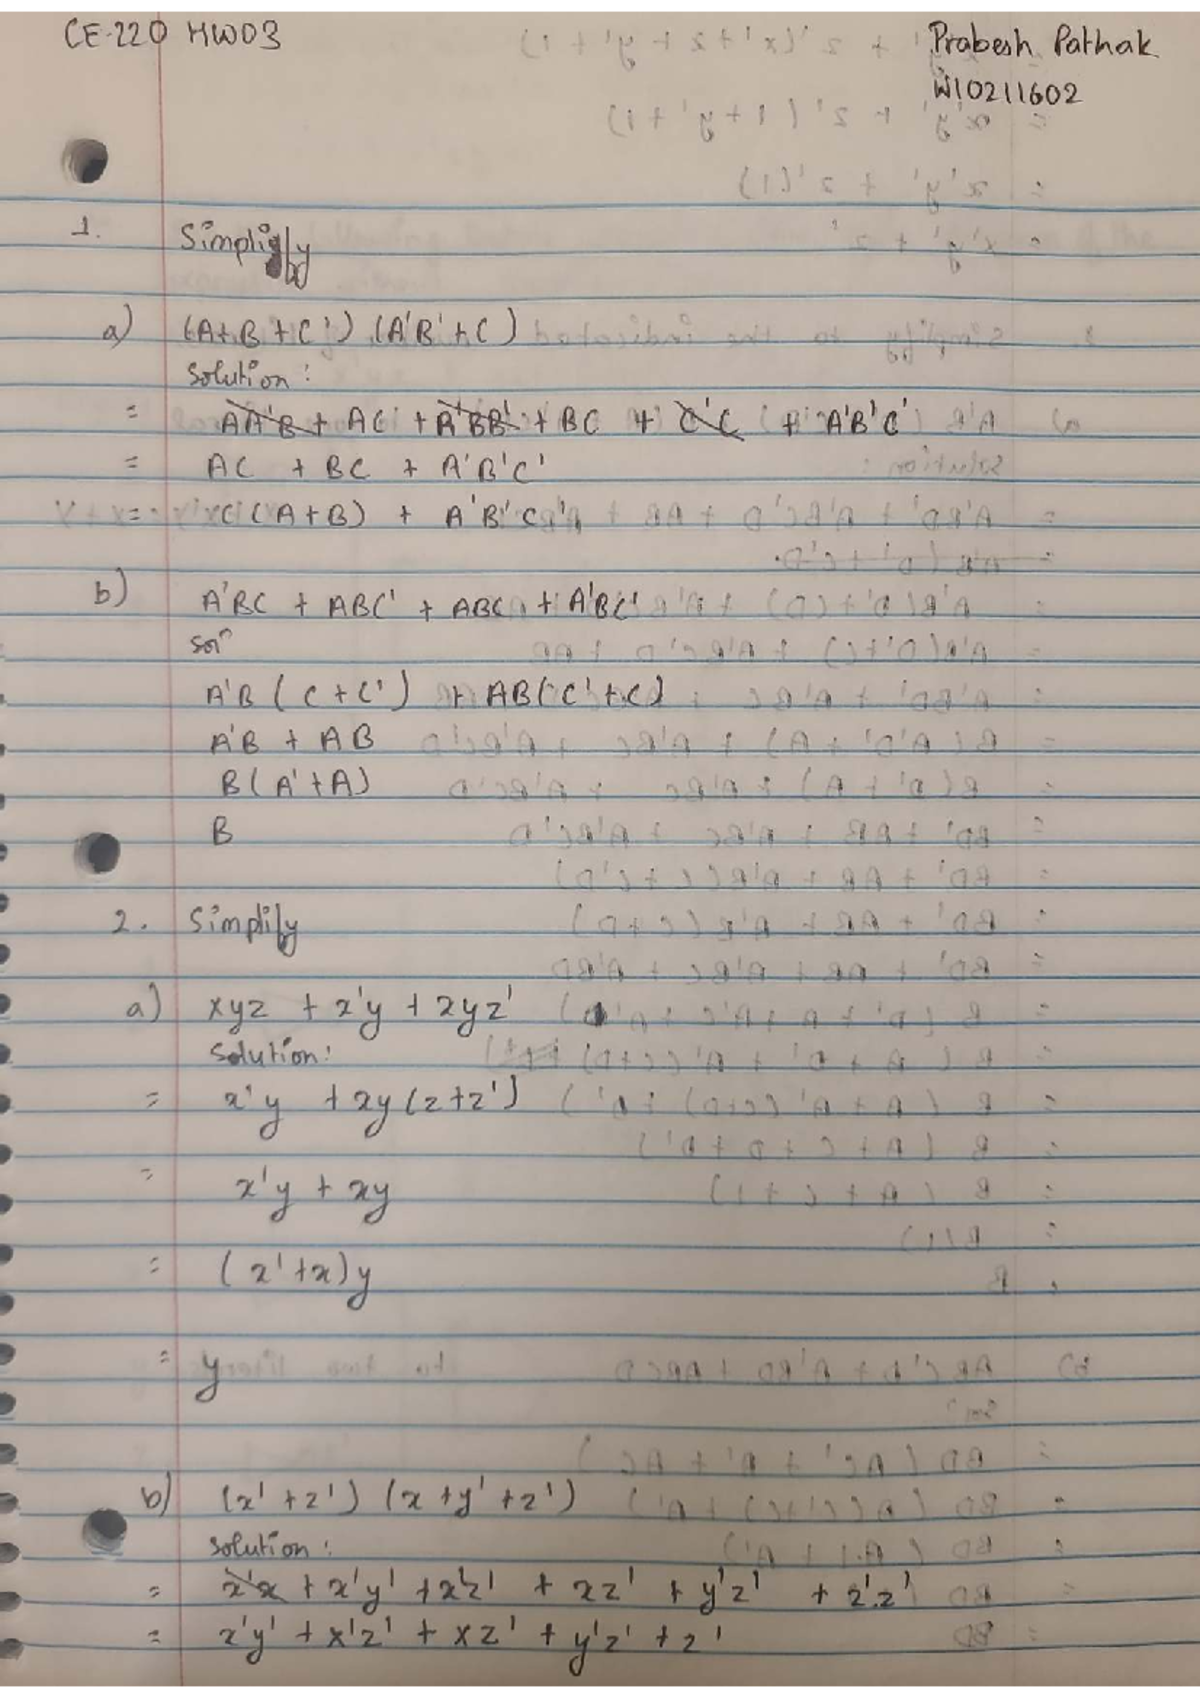 CE-220 HW03
Prabesh Pathak
W10211602
1. Simplify
a) (A+B+C') (A'B'+C)
Solution:
= AA'B + AC + A'BB' + BC + C'C + A'B'C'
= AC + BC + A'B'C'
= C(A+B) + A'B'C'
b) A'BC + ABC' + ABC + A'BC'
Solⁿ
A'B (C+C') + AB(C'+C)
A'B + AB
B(A'+A)
B
2. Simplify
a) xyz + x'y + xyz'
Solution:
= x'y + xy(z+z')
= x'y + xy
= (x'+x)y
= y
b) (x'+z') (x+y'+z')
Solution:
= x'x + x'y' + x'z' + xz' + y'z' + z'.z'
= x'y' + x'z' + xz' + y'z' + z'